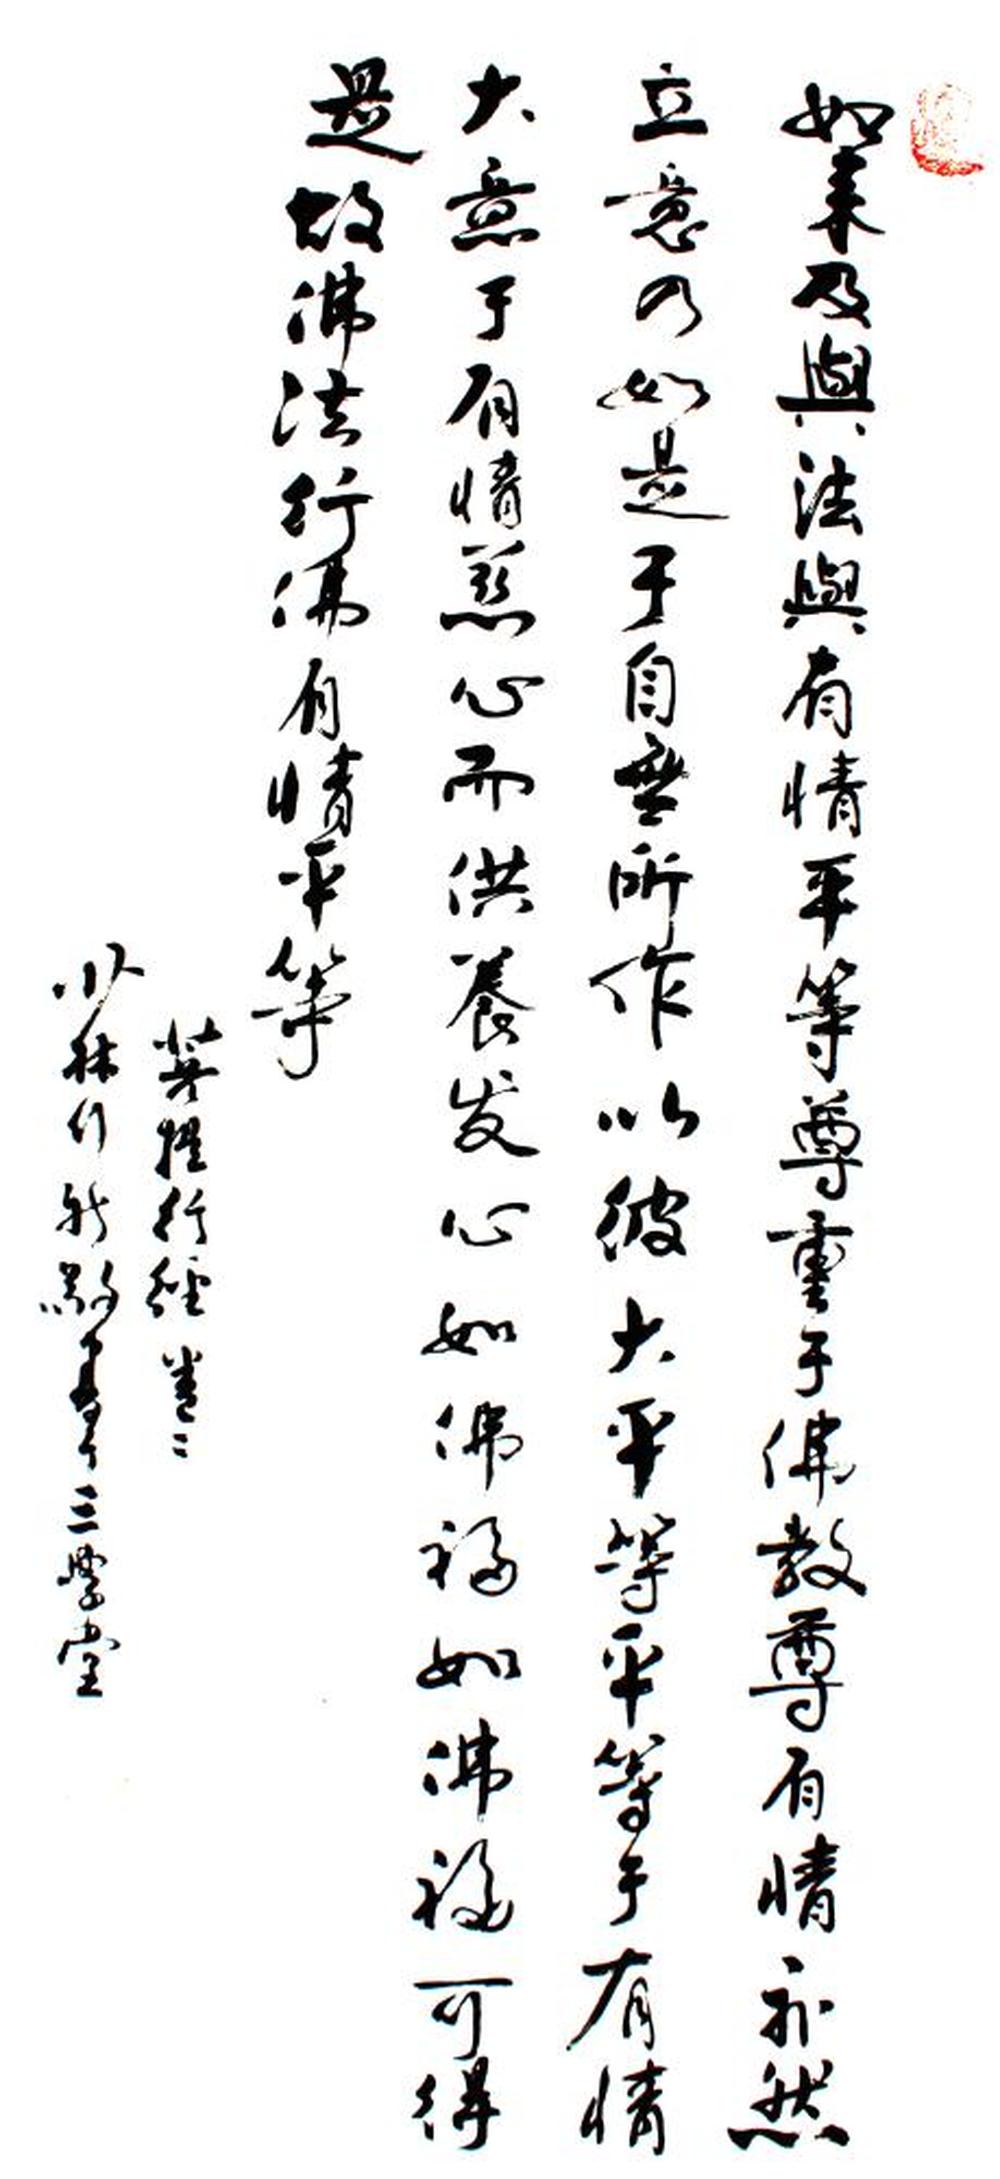 如来及與法與有情平等尊重于佛教尊有情亦然
立意乃如是于自無所作以彼大平等平等于有情
大意于有情慈心而供養发心如佛福如佛福可得
是故佛法行佛有情平等
菩提行經卷二
少林行新敬書于三學堂